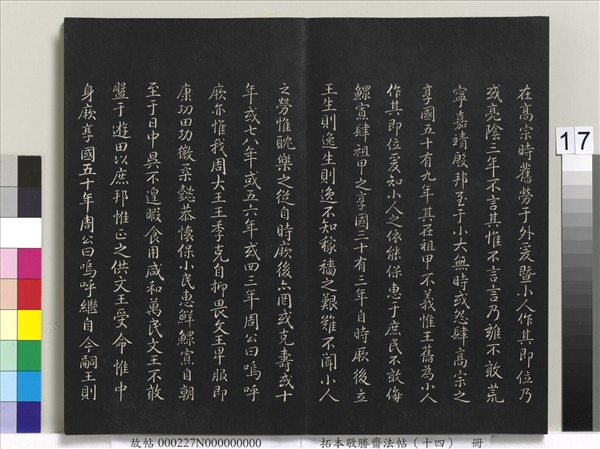 在高宗時舊勞于外爰暨小人作其即位乃
或亮陰三年不言其惟不言言乃雍不敢荒
寧嘉靖殷邦至于小大無時或怨肆高宗之
享國五十有九年其在祖甲不義惟王舊為小人
作其即位爰知小人之依能保惠于庶民不敢侮
鰥寡肆祖甲之享國三十有三年自時厥後立
王生則逸生則逸不知稼穡之艱難不聞小人
之勞惟耽樂之從自時厥後亦罔或克壽或十
年或七八年或五六年或四三年周公曰嗚呼
厥亦惟我周大王王季克自抑畏文王卑服即
康功田功徽柔懿恭懷保小民惠鮮鰥寡自朝
至于日中昃不遑暇食用咸和萬民文王不敢
盤于遊田以庶邦惟正之供文王受命惟中
身厥享國五十年周公曰嗚呼繼自今嗣王則
17
故帖 000227N000000000 拓本敬勝齋法帖（十四） 冊